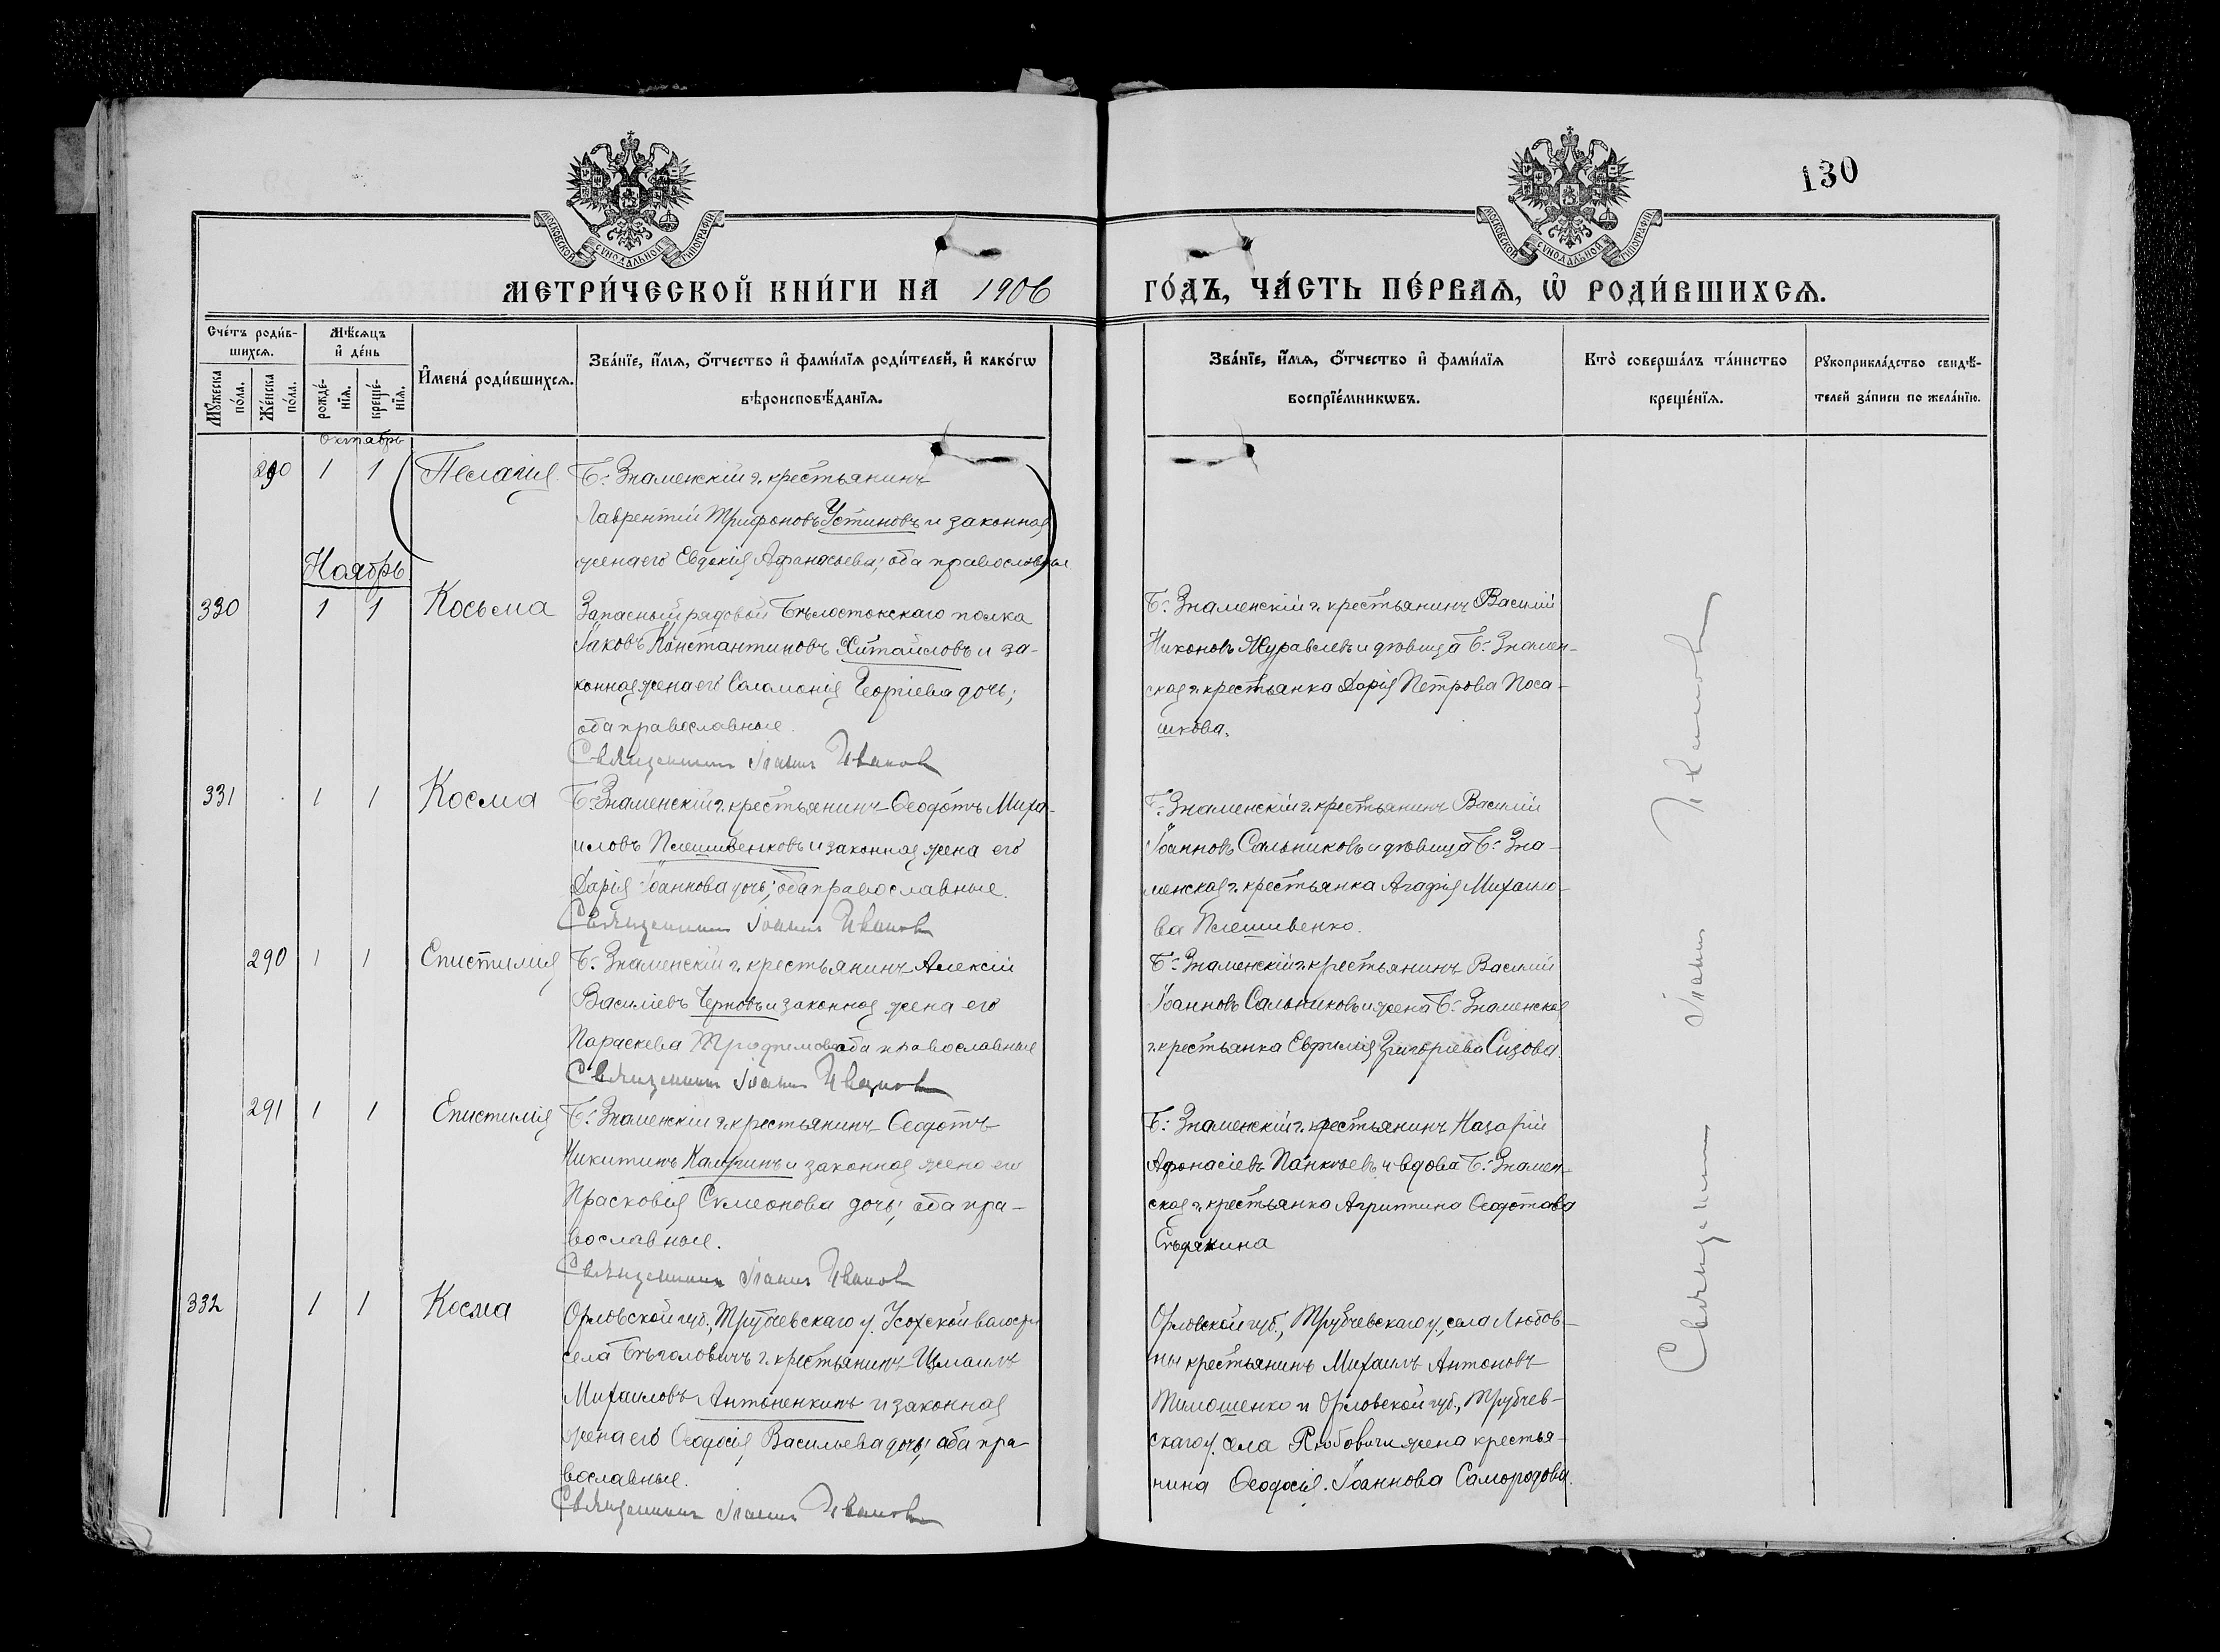 130
МОСКОВСКОЙ СѴНОДАЛЬНОЙ ТИПОГРАФІИ
МОСКОВСКОЙ СѴНОДАЛЬНОЙ ТИПОГРАФІИ
МЕТРИ́ЧЕСКОЙ КНИ́ГИ НА 1906 ГО́ДЪ, ЧА́СТЬ ПЕ́РВАѦ, Ѡ҆ РОДИ́ВШИХСѦ.
Сче́тъ роди́вшихсѧ.
Мꙋ́жеска по́ла.
Же́нска по́ла.
Мѣ́сѧцъ и҆ де́нь
рожде́нїѧ.
креще́нїѧ.
И҆мена̀ роди́вшихсѧ.
Зва́нїе, и҆́мѧ, ѻ҆́тчество и҆ фами́лїѧ роди́телей, и҆ како́гѡ
вѣроисповѣ́данїѧ.
Зва́нїе, и҆́мѧ, ѻ҆́тчество и҆ фами́лїѧ
воспрїе́мникѡвъ.
Кто̀ соверша́лъ та́инство
креще́нїѧ.
Рꙋкоприкла́дство свидѣ́-
телей за́писи по жела́нїю.
Октябрь
290 1 1 Пелагія Б: Знаменскій г. крестьянинъ
Лаврентій Трифоновъ Устиновъ и законная
жена его Евдокія Афанасьева; оба православные
Ноябрь
330 1 1 Косьма Запасный рядовой Бѣлостокскаго полка
Іаковъ Константиновъ Хитайловъ и за-
конная жена его Саломонія Георгіева дочь;
оба православные.
Священникъ Іоаннъ Иванов
Б: Знаменскій г. крестьянинъ Василій
Никоновъ Журавлевъ и дѣвица Б: Знамен-
ская г. крестьянка Дарія Петрова Поса-
шкова.
331 1 1 Косма Б: Знаменскій г. крестьянинъ Ѳеодотъ Миха-
иловъ Плешивенковъ и законная жена его
Дарія Іоаннова дочь; оба православные.
Священникъ Іоаннъ Иванов
Б: Знаменскій г. крестьянинъ Василій
Іоанновъ Сальниковъ и дѣвица Б: Зна-
менская г. крестьянка Агафія Михаило-
ва Плешивенко.
290 1 1 Епистимія Б: Знаменскій г. крестьянинъ Алексій
Василіевъ Черновъ и законная жена его
Параскева Трофимова оба православные
Священникъ Іоаннъ Иванов
Б: Знаменскій г. крестьянинъ Василій
Іоанновъ Сальниковъ и жена Б: Знаменская
г. крестьянка Евфимія Григоріева Сизова.
291 1 1 Епистимія Б: Знаменскій г. крестьянинъ Ѳеодотъ
Никитинъ Калугинъ и законная жена его
Прасковія Сѵмеонова дочь; оба пра-
вославные.
Священникъ Іоаннъ Иванов
Б: Знаменскій г. крестьянинъ Назарій
Афонасіевъ Паньковъ и вдова Б: Знамен-
ская г. крестьянка Агриппина Ѳеодотова
Сѣдякина
332 1 1 Косма Орловской губ., Трубчевскаго у. Усохской волости
села Бѣголовичъ г. крестьянинъ Измаилъ
Михаиловъ Антоненкинъ и законная
жена его Ѳеодосія Васильева дочь; оба пра-
вославные.
Священникъ Іоаннъ Иванов
Орловской губ., Трубчевскаго у., села Любов-
ны крестьянинъ Михаилъ Антоновъ
Тимошенко и Орловской губ., Трубчев-
скаго у. села жена крестья-
нина Ѳеодосія Іоаннова Самородова.
Священникъ Іоаннъ